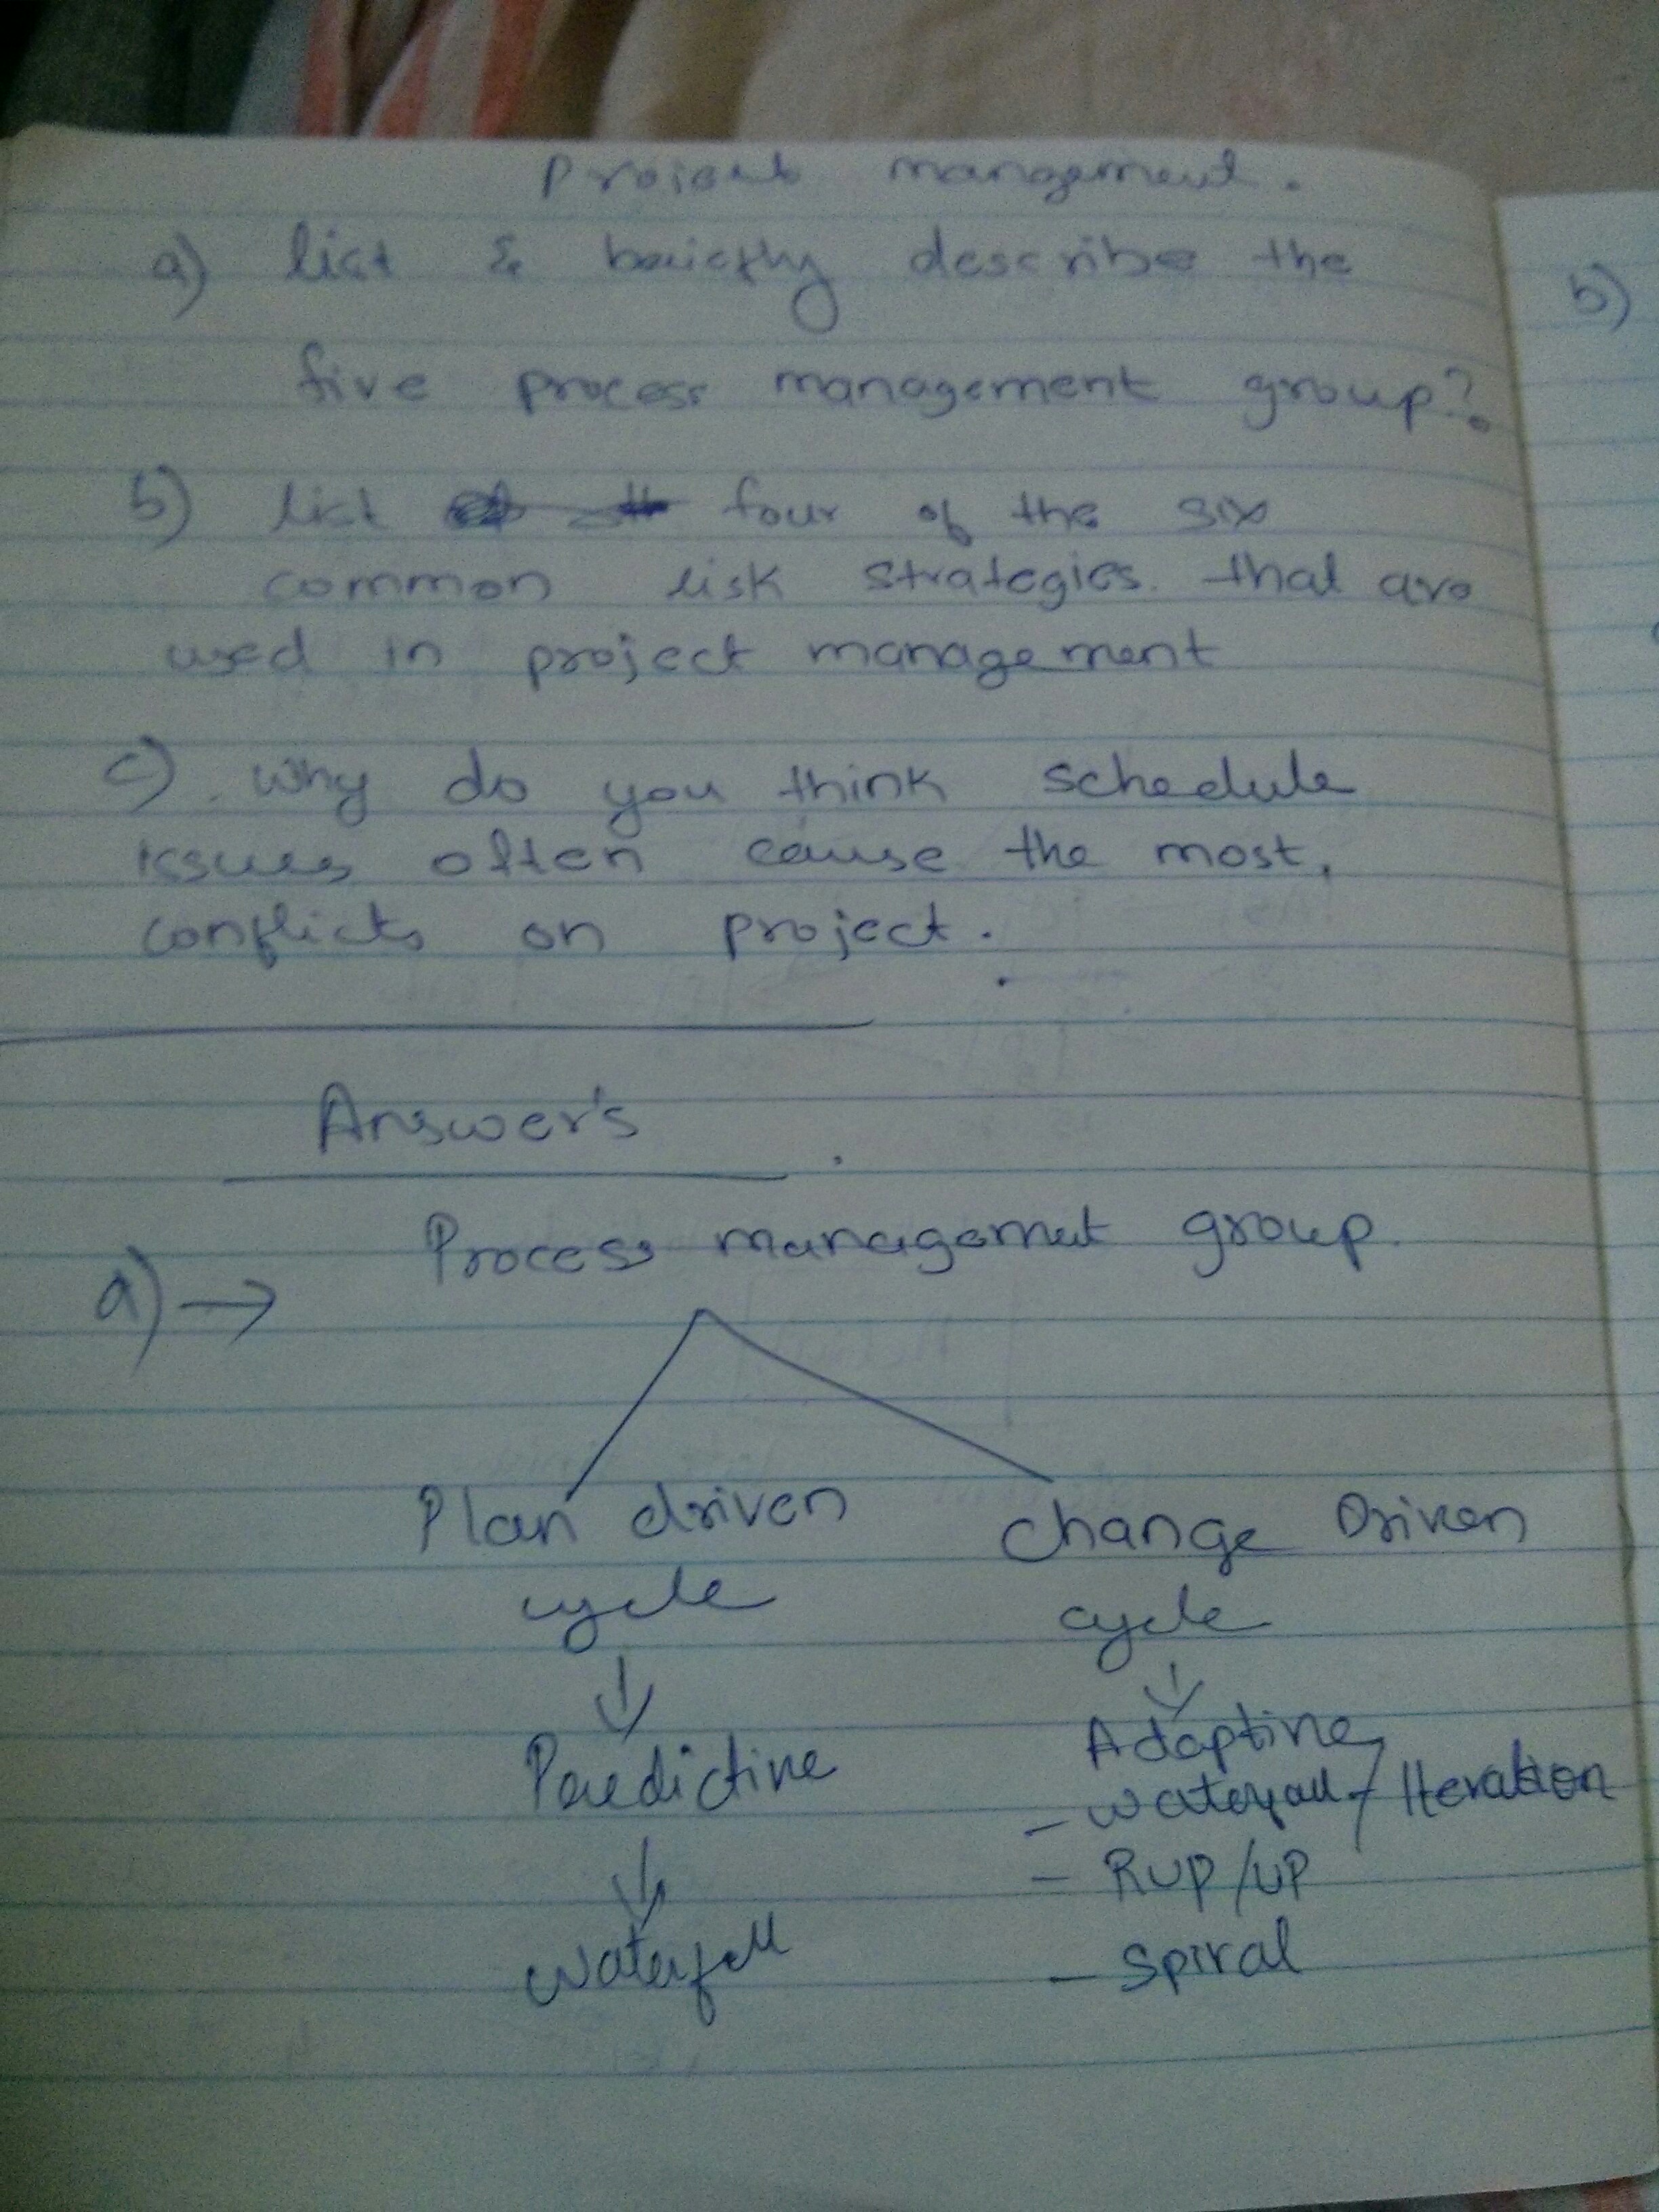 Project management.
a) list & briefly describe the
five process management group?
b) list four of the six
common risk strategies. that are
used in project management
c). Why do you think schedule
issues often cause the most,
conflicts on project.
Answer's
Process managemet group.
a) →
Plan driven
cycle
Change Driven
cycle
Predictive
Waterfall
Adaptive
- waterfall / Iteration
- RUP/UP
- Spiral
b)